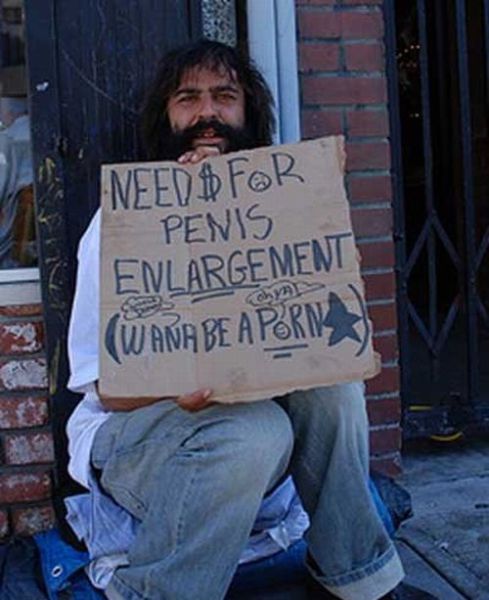 NEED $ FOR
PENIS
ENLARGEMENT
oh YA!
(WANA BE A PORN★)